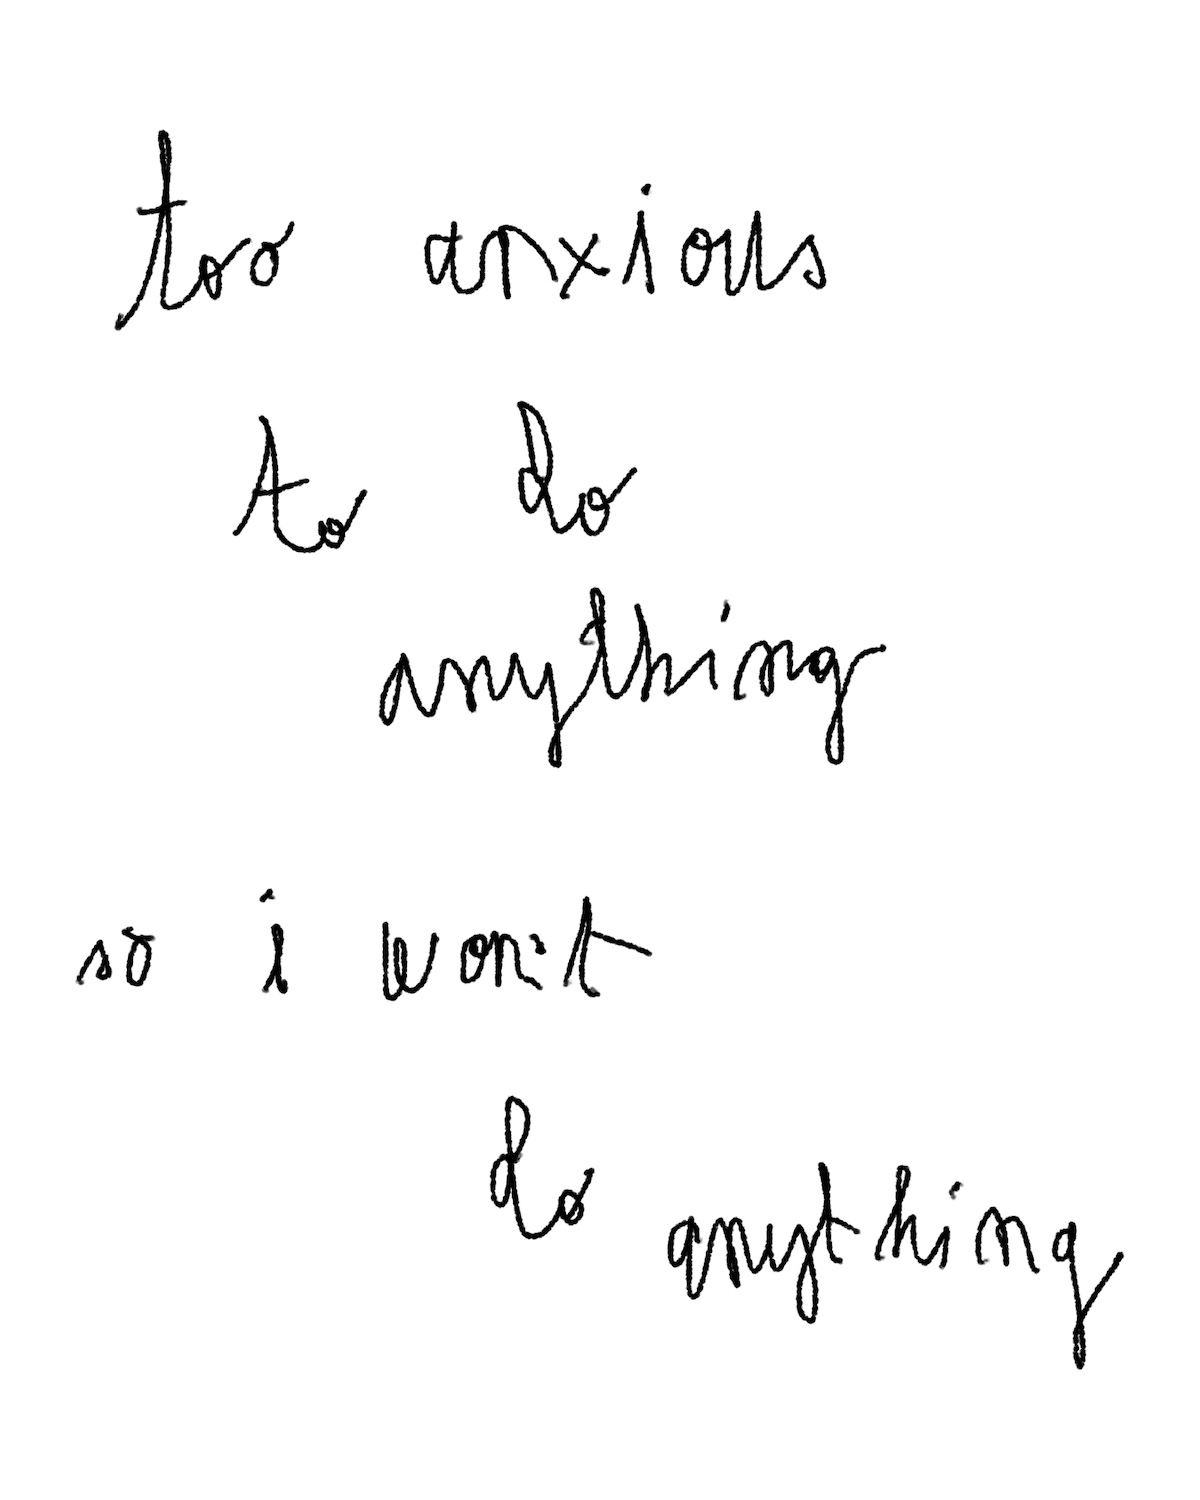 too anxious
to do
anything
so i won't
do anything